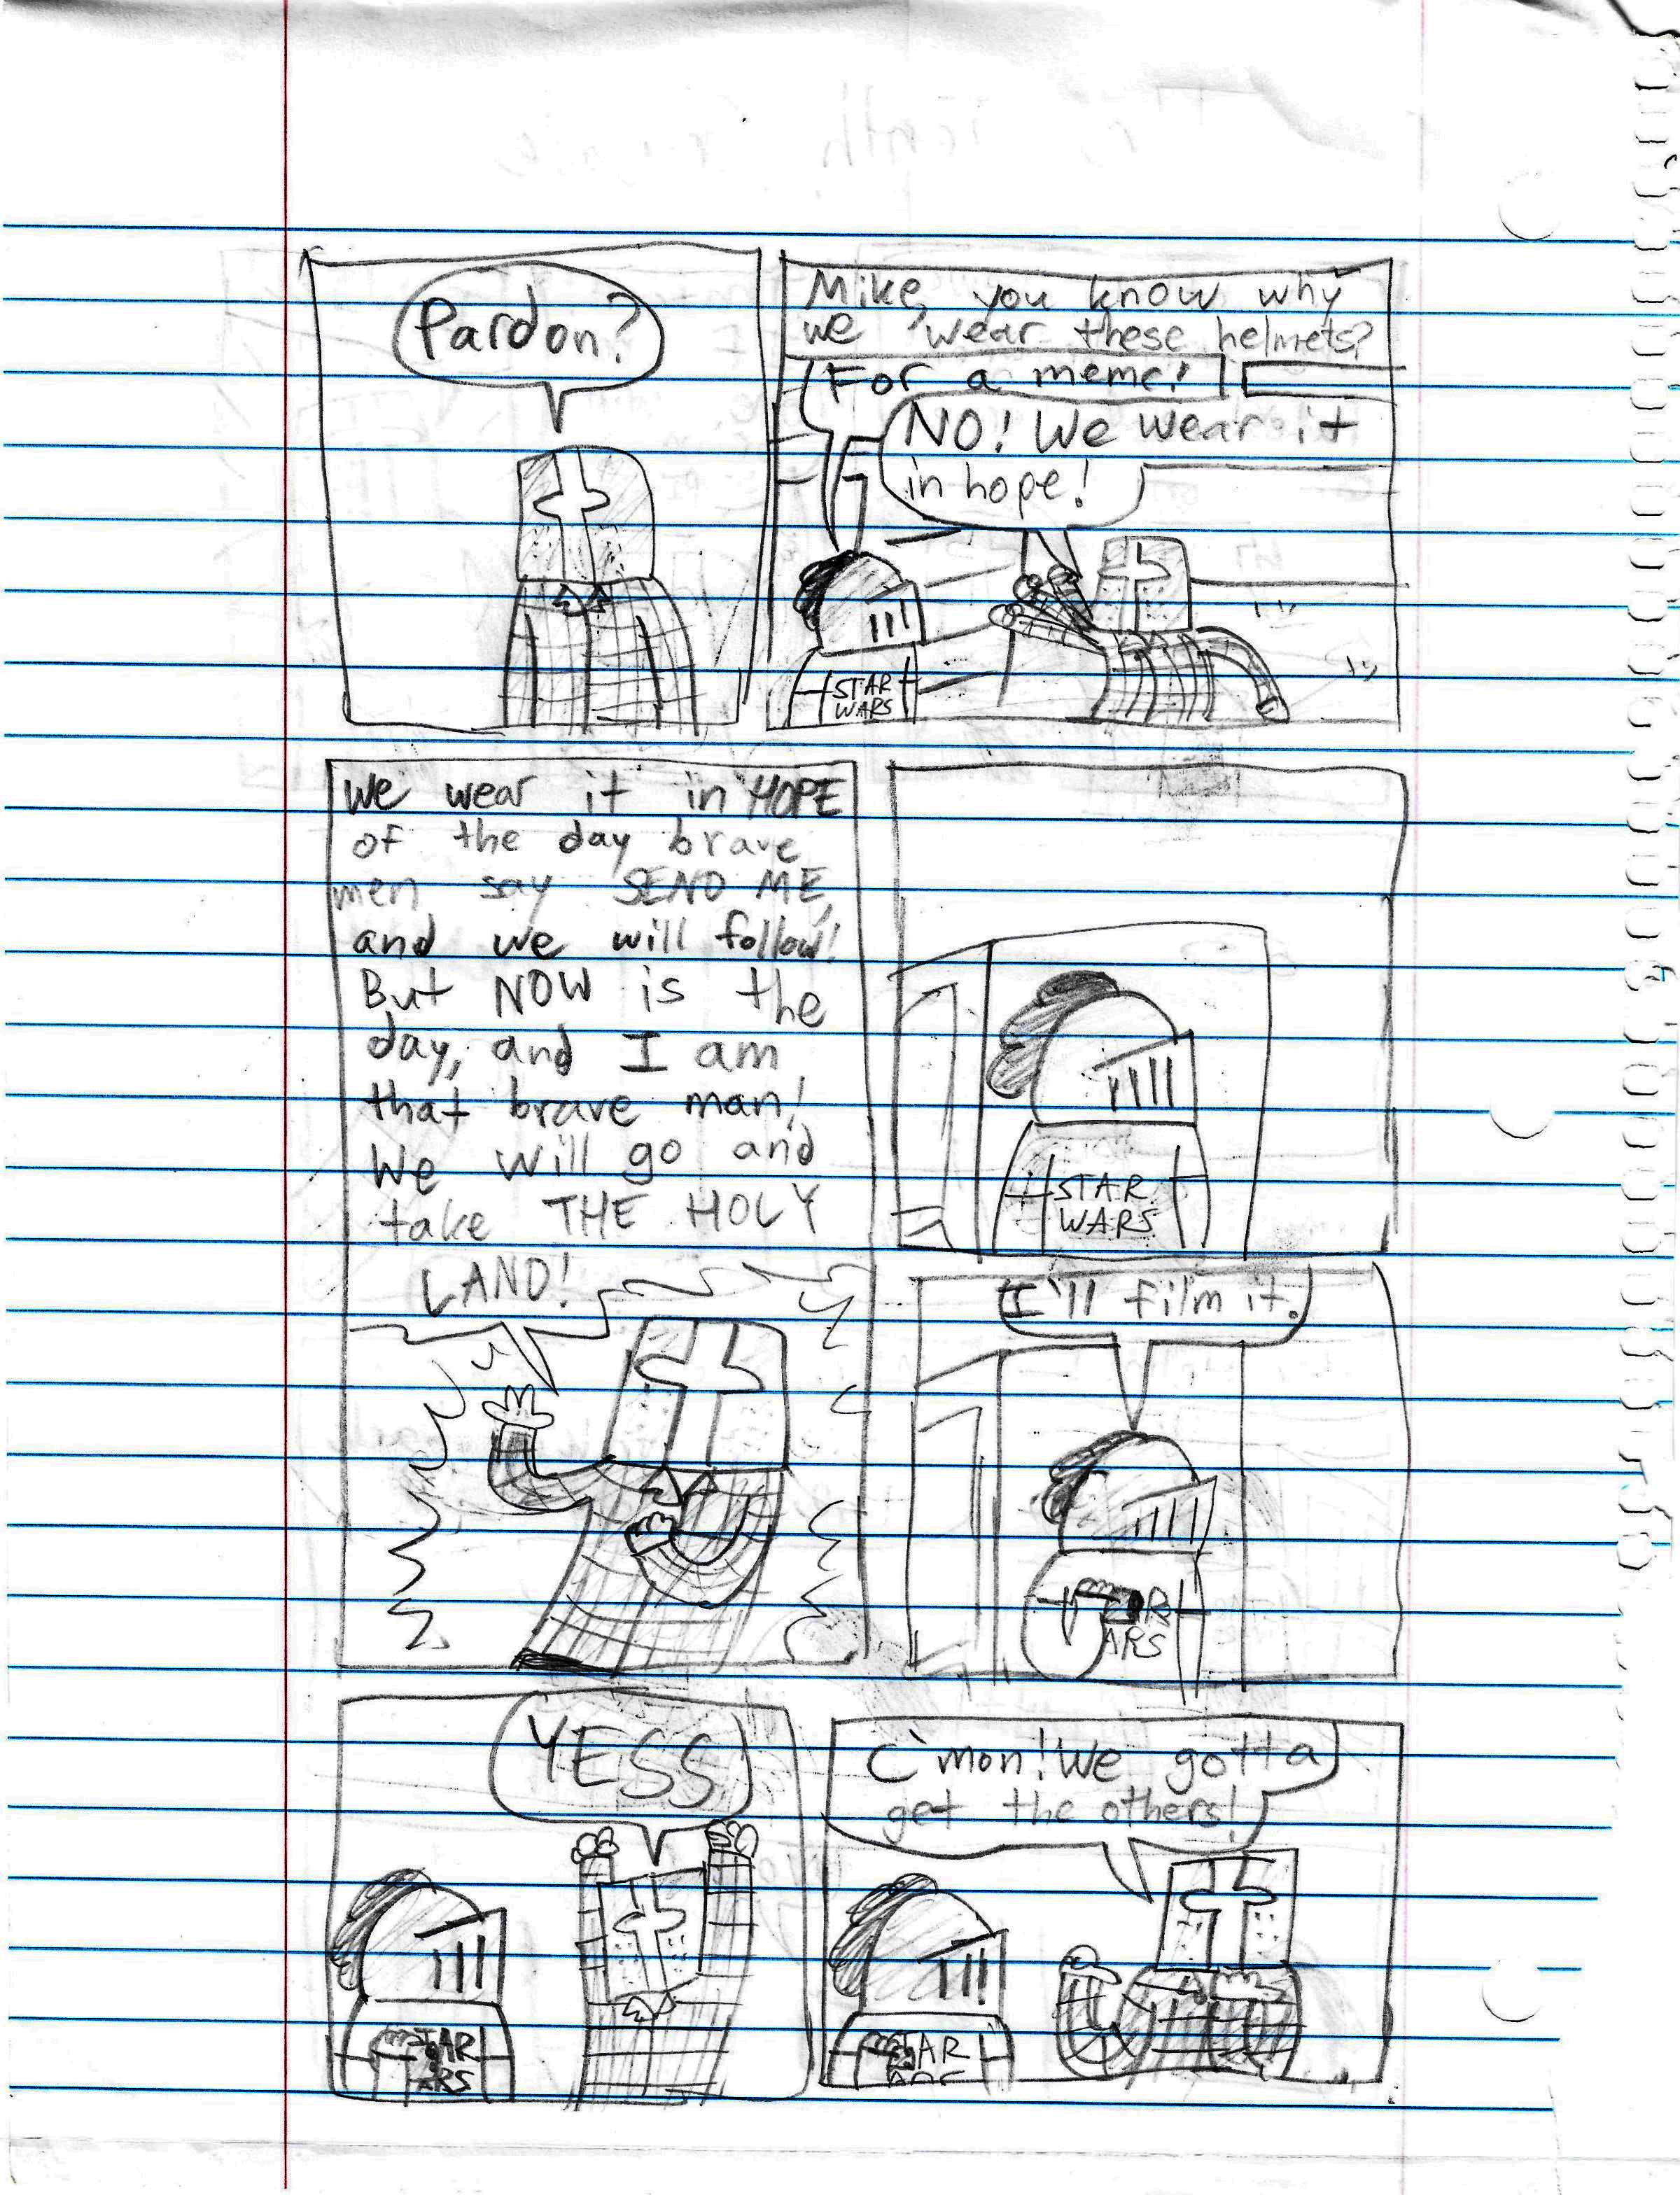 Pardon?
Mike, you know why
we wear these helmets?
For a meme!
NO! We wear it
in hope!
STAR
WARS
We wear it in HOPE
of the day brave
men say SEND ME,
and we will follow!
But NOW is the
day, and I am
that brave man!
We will go and
take THE HOLY
LAND!
STAR
WARS
I'll film it.
ARS
YESS
TAR
ARS
C'mon! We gotta
get the others!
TAR